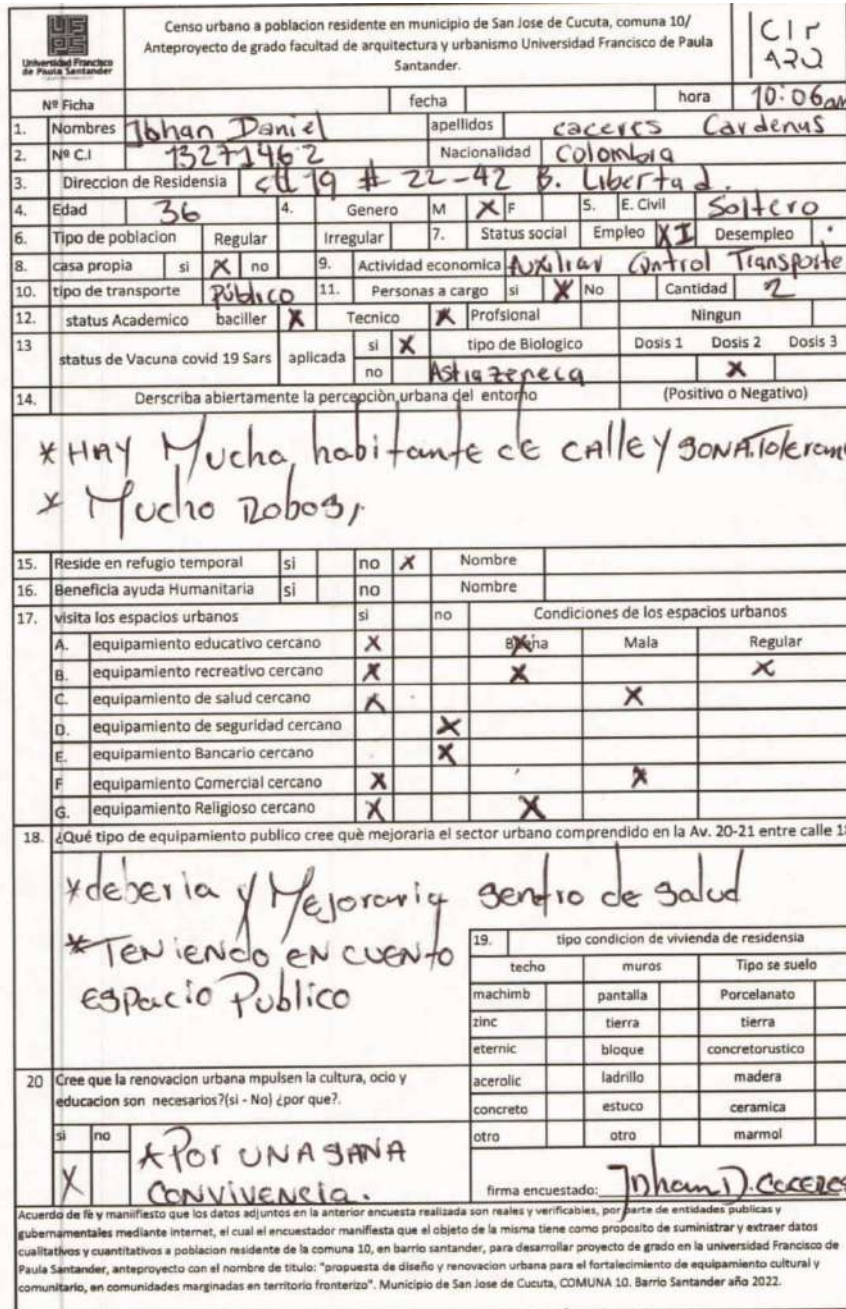 Universidad Francisco
de Paula Santander
Censo urbano a poblacion residente en municipio de San Jose de Cucuta, comuna 10/
Anteproyecto de grado facultad de arquitectura y urbanismo Universidad Francisco de Paula
Santander.
Nº Ficha fecha hora 10:06am
1. Nombres Jbhan Daniel apellidos caceres Cardenus
2. Nº C.I 13271462 Nacionalidad Colombia
3. Direccion de Residensia cll 19 # 22-42 B. Libertad.
4. Edad 36 4. Genero M X F 5. E. Civil Soltero
6. Tipo de poblacion Regular Irregular 7. Status social Empleo X Desempleo
8. casa propia si X no 9. Actividad economica Auxiliar Control Transporte
10. tipo de transporte Público 11. Personas a cargo si X No Cantidad 2
12. status Academico baciller X Tecnico X Profsional Ningun
13 status de Vacuna covid 19 Sars aplicada si X tipo de Biologico Dosis 1 Dosis 2 Dosis 3
no Astiazeneca X
14. Derscriba abiertamente la percepciòn urbana del entorno (Positivo o Negativo)
* HAY Mucha habitante de CAlle y SONA.Toleram
* Mucho Robos,
15. Reside en refugio temporal si no X Nombre
16. Beneficia ayuda Humanitaria si no Nombre
17. visita los espacios urbanos si no Condiciones de los espacios urbanos
A. equipamiento educativo cercano X Buena X Mala Regular
B. equipamiento recreativo cercano X X X
C. equipamiento de salud cercano X X
D. equipamiento de seguridad cercano X
E. equipamiento Bancario cercano X
F equipamiento Comercial cercano X X
G. equipamiento Religioso cercano X X
18. ¿Qué tipo de equipamiento publico cree què mejoraria el sector urbano comprendido en la Av. 20-21 entre calle 18
*deberia y Mejoraria sentro de salud
*TENIENdo EN CUENto
Espacio Publico
19. tipo condicion de vivienda de residensia
techo muros Tipo se suelo
machimb pantalla Porcelanato
zinc tierra tierra
eternic bloque concretorustico
acerolic ladrillo madera
concreto estuco ceramica
otro otro marmol
20 Cree que la renovacion urbana mpulsen la cultura, ocio y
educacion son necesarios?(si - No) ¿por que?.
si no
X * Por UNA SANA
CONVIVENCIA.
firma encuestado: Jnhan D. CACERES
Acuerdo de fe y maniifiesto que los datos adjuntos en la anterior encuesta realizada son reales y verificabies, por parte de entidades publicas y
gubernamentales mediante internet, el cual el encuestador manifiesta que el objeto de la misma tiene como proposito de suministrar y extraer datos
cualitativos y cuantitativos a poblacion residente de la comuna 10, en barrio santander, para desarrollar proyecto de grado en la universidad Francisco de
Paula Santander, anteproyecto con el nombre de titulo: "propuesta de diseño y renovacion urbana para el fortalecimiento de equipamiento cultural y
comunitario, en comunidades marginadas en territorio fronterizo". Municipio de San Jose de Cucuta, COMUNA 10. Barrio Santander año 2022.